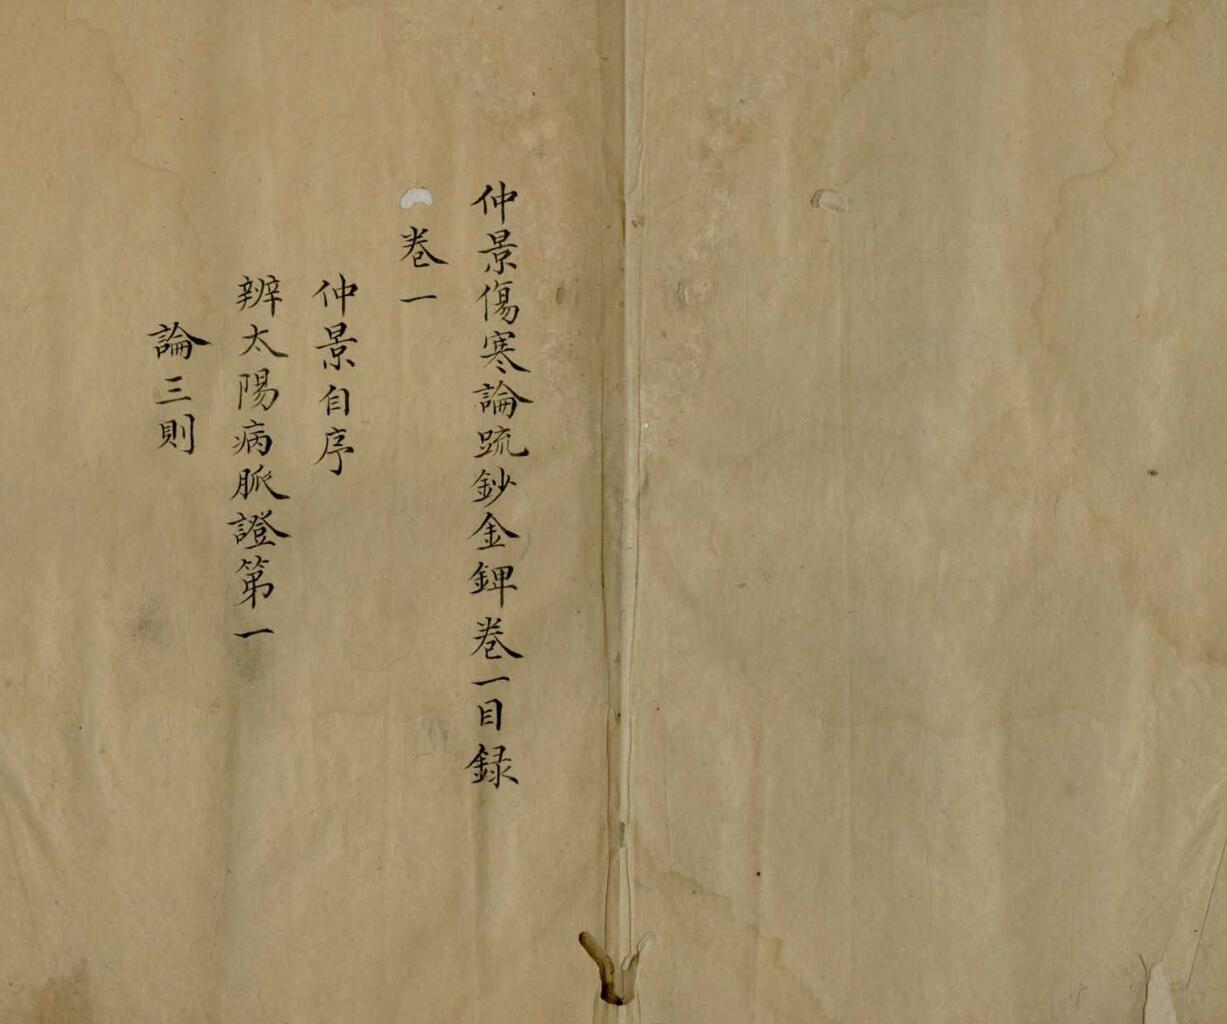 仲景傷寒論疏鈔金錍卷一目録
卷一
仲景自序
辨太陽病脈證第一
論三則